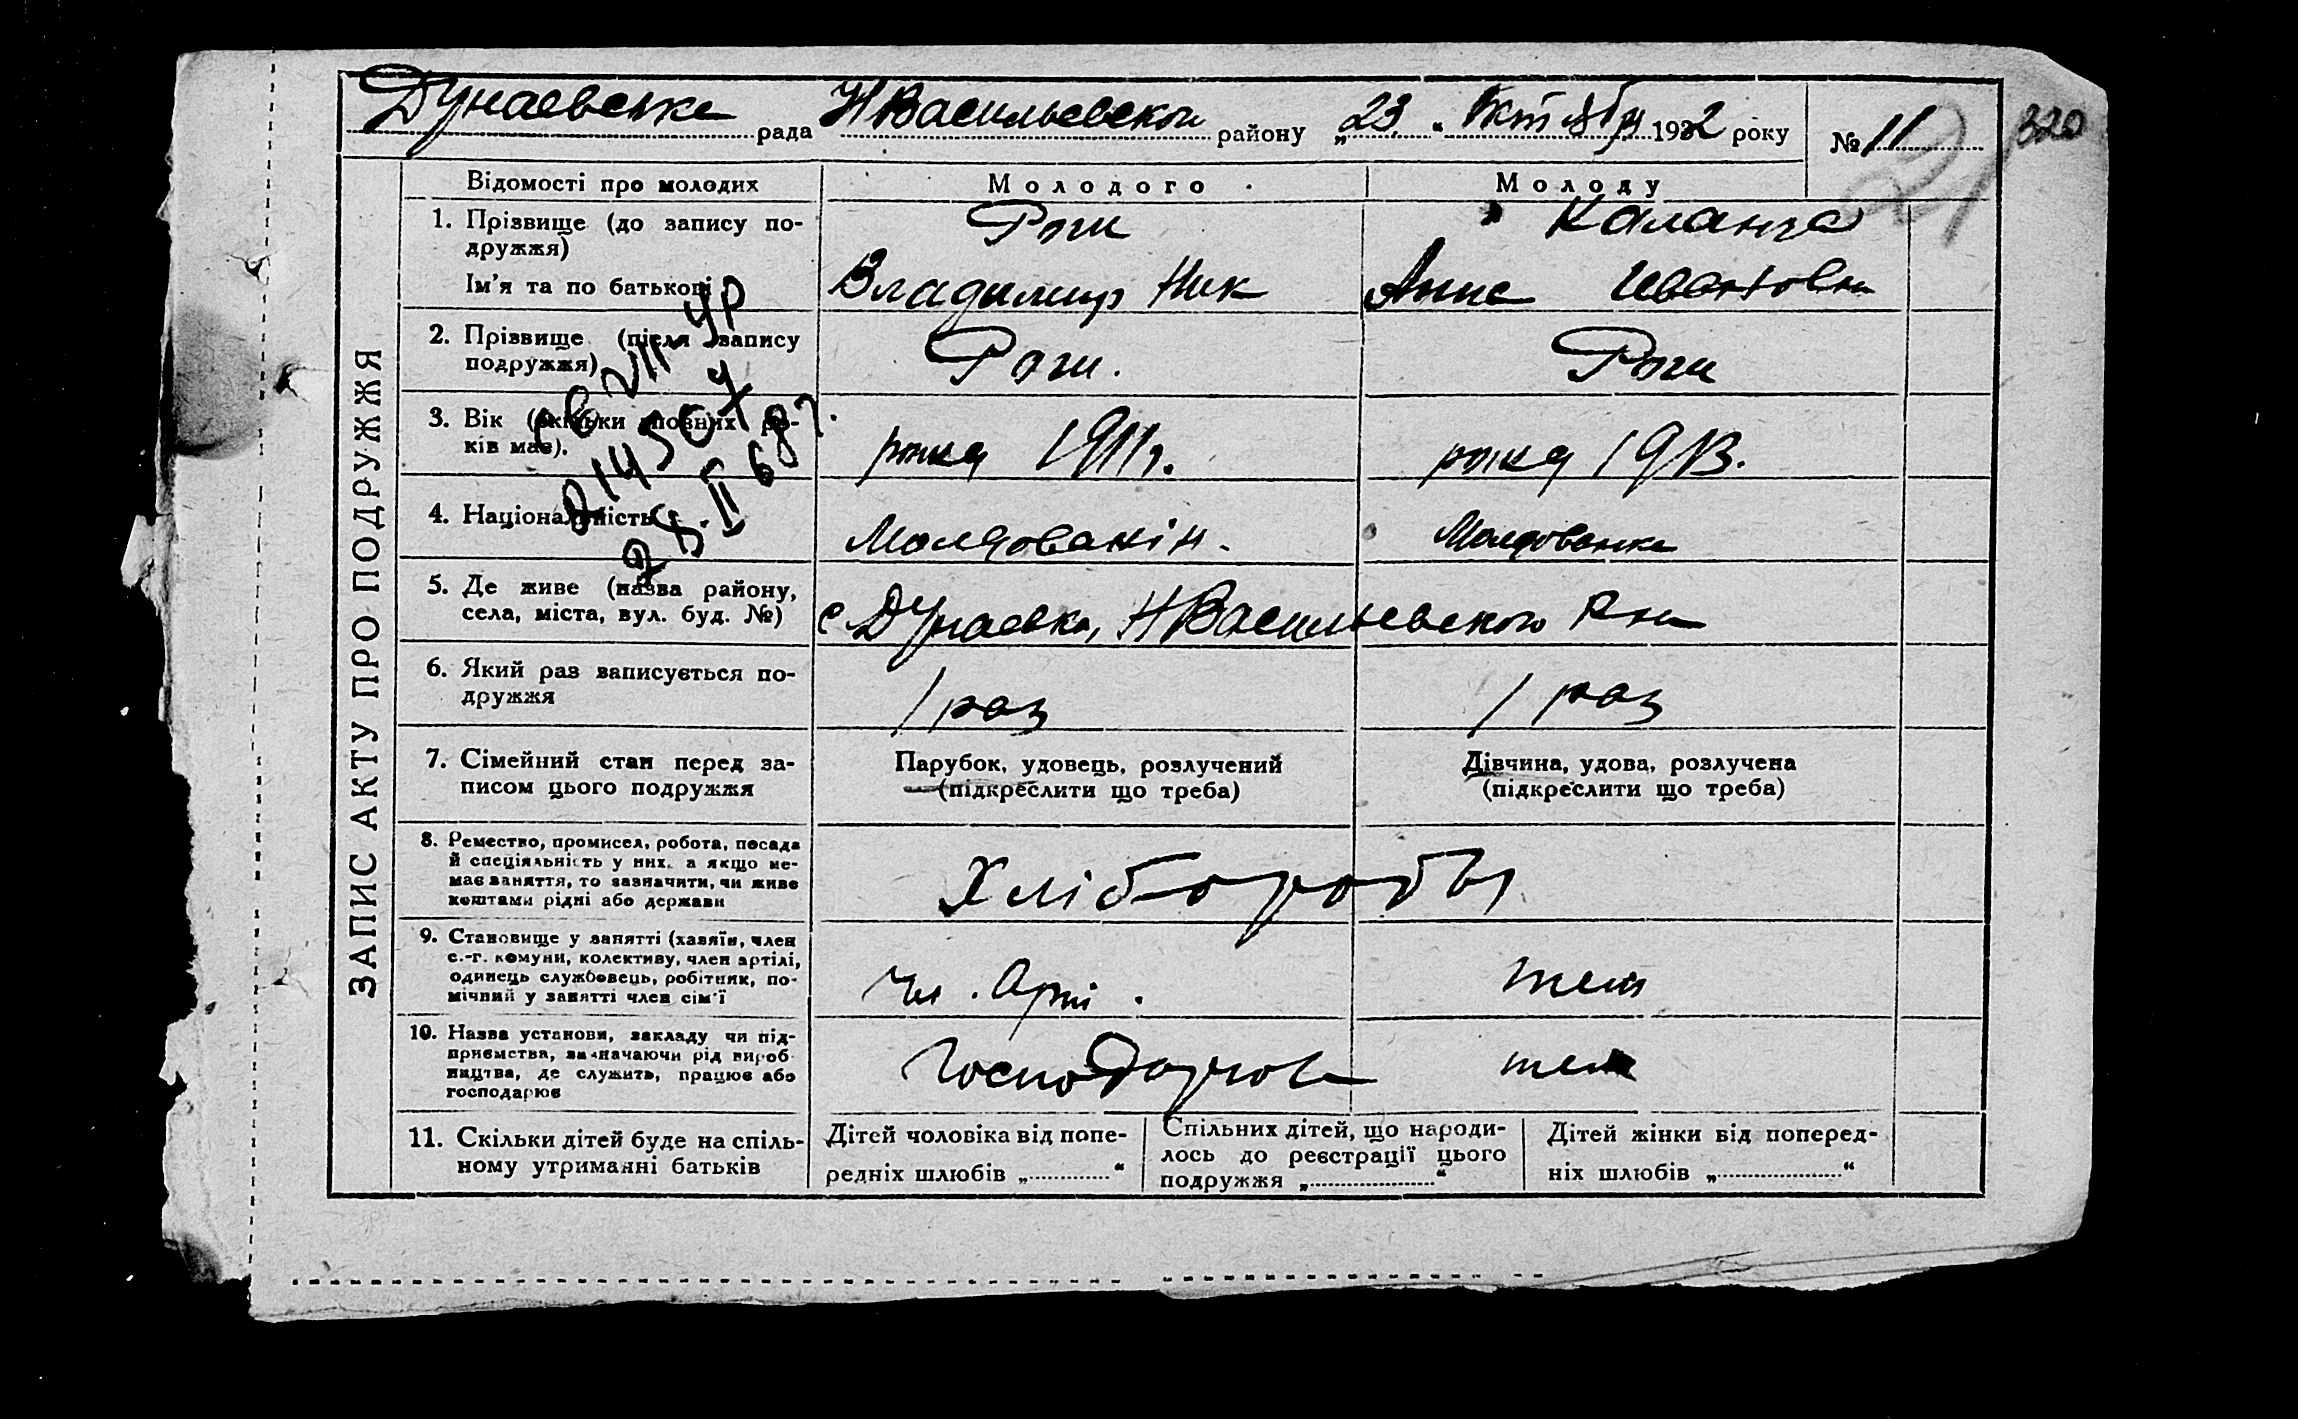 Дунаевське рада НВасильевского району „23“ Октября 1932 року № 11
320
21
ЗАПИС АКТУ ПРО ПОДРУЖЖЯ
Відомості про молодих Молодого Молоду
1. Прізвище (до запису по-
дружжя)
Роги Каланча
Ім'я та по батькові Владимир Ник Анна Ивановна
2. Прізвище (після запису
подружжя)
Роги. Роги
3. Вік (скільки повних ро-
ків має).
рожд 1911г. рожд 1913.
4. Національність Молдованін. Молдованка
5. Де живе (назва району,
села, міста, вул. буд. №)
с Дунаевка, НВасильевского Рна
6. Який раз записується по-
дружжя
1 раз 1 раз
7. Сімейний стан перед за-
писом цього подружжя
Парубок, удовець, розлучений
(підкреслити що треба)
Дівчина, удова, розлучена
(підкреслити що треба)
8. Ремество, промисел, робота, посада
й спеціяльність у них, а якщо не-
має заняття, то зазначити, чи живе
коштами рідні або держави
Хліборобы
9. Становище у занятті (хазяїн, член
с.-г. комуни, колективу, член артілі,
одинець службовець, робітник, по-
мічний у занятті член сім'ї
Чл. Арті. теж
10. Назва установи, закладу чи під-
приємства, зазначаючи рід вироб-
ництва, де служить, працює або
господарює
теж
11. Скільки дітей буде на спіль-
ному утриманні батьків
Дітей чоловіка від попе-
редніх шлюбів „ “
Спільних дітей, що народи-
лось до реєстрації цього
подружжя „ “
Дітей жінки від поперед-
ніх шлюбів „ “
УР
28.II 68г.